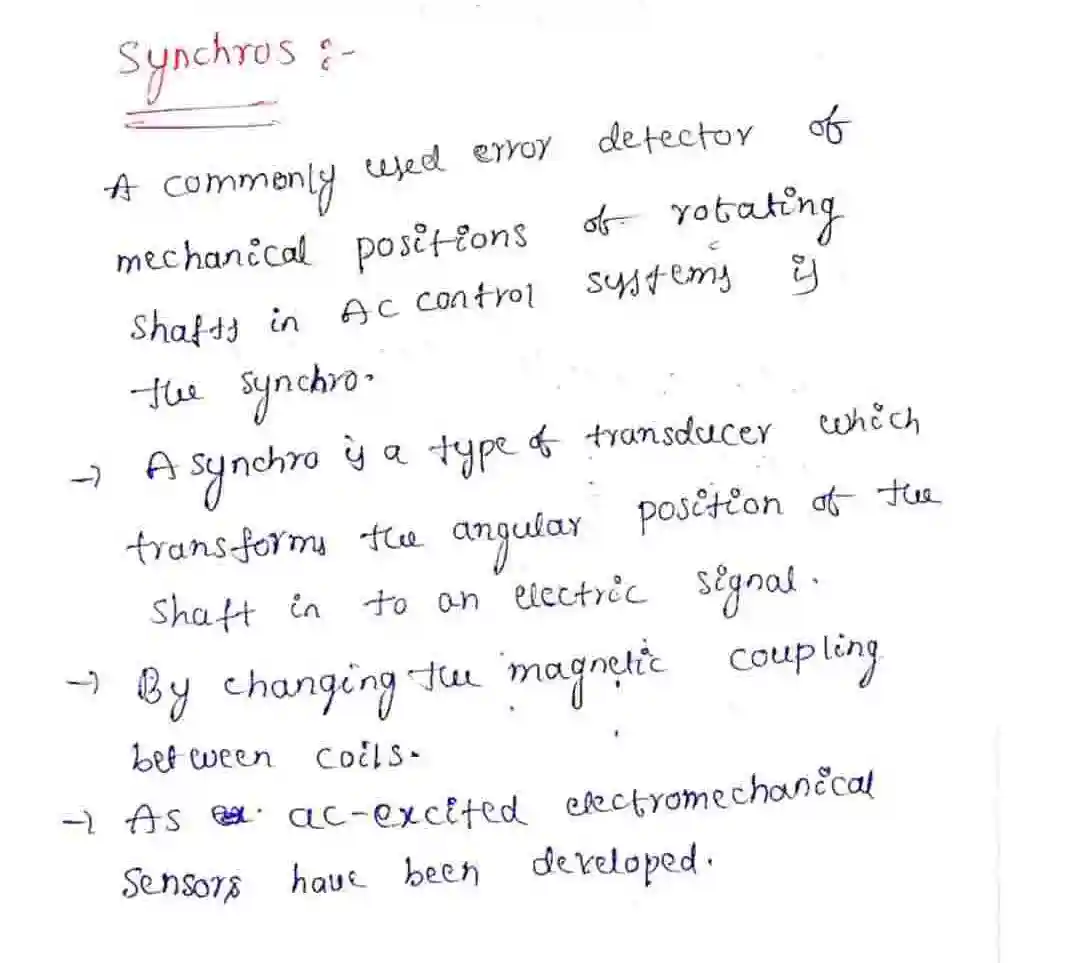 Synchros :-
A commonly used error detector of
mechanical positions of rotating
shafts in AC control systems is
the synchro.
→ A synchro is a type of transducer which
transforms the angular position of the
shaft in to an electric signal.
→ By changing the magnetic coupling
between coils.
→ As ac-excited electromechanical
sensors have been developed.